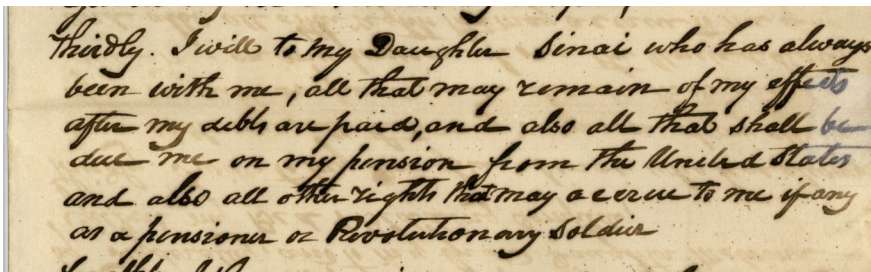 thirdly. I will to my Daughter Sinai who has always
been with me, all that may remain of my effects
after my debts are paid, and also all that shall be
due me on my pension from the United States
and also all other rights that may accrue to me if any
as a pensioner or Revolutionary Soldier